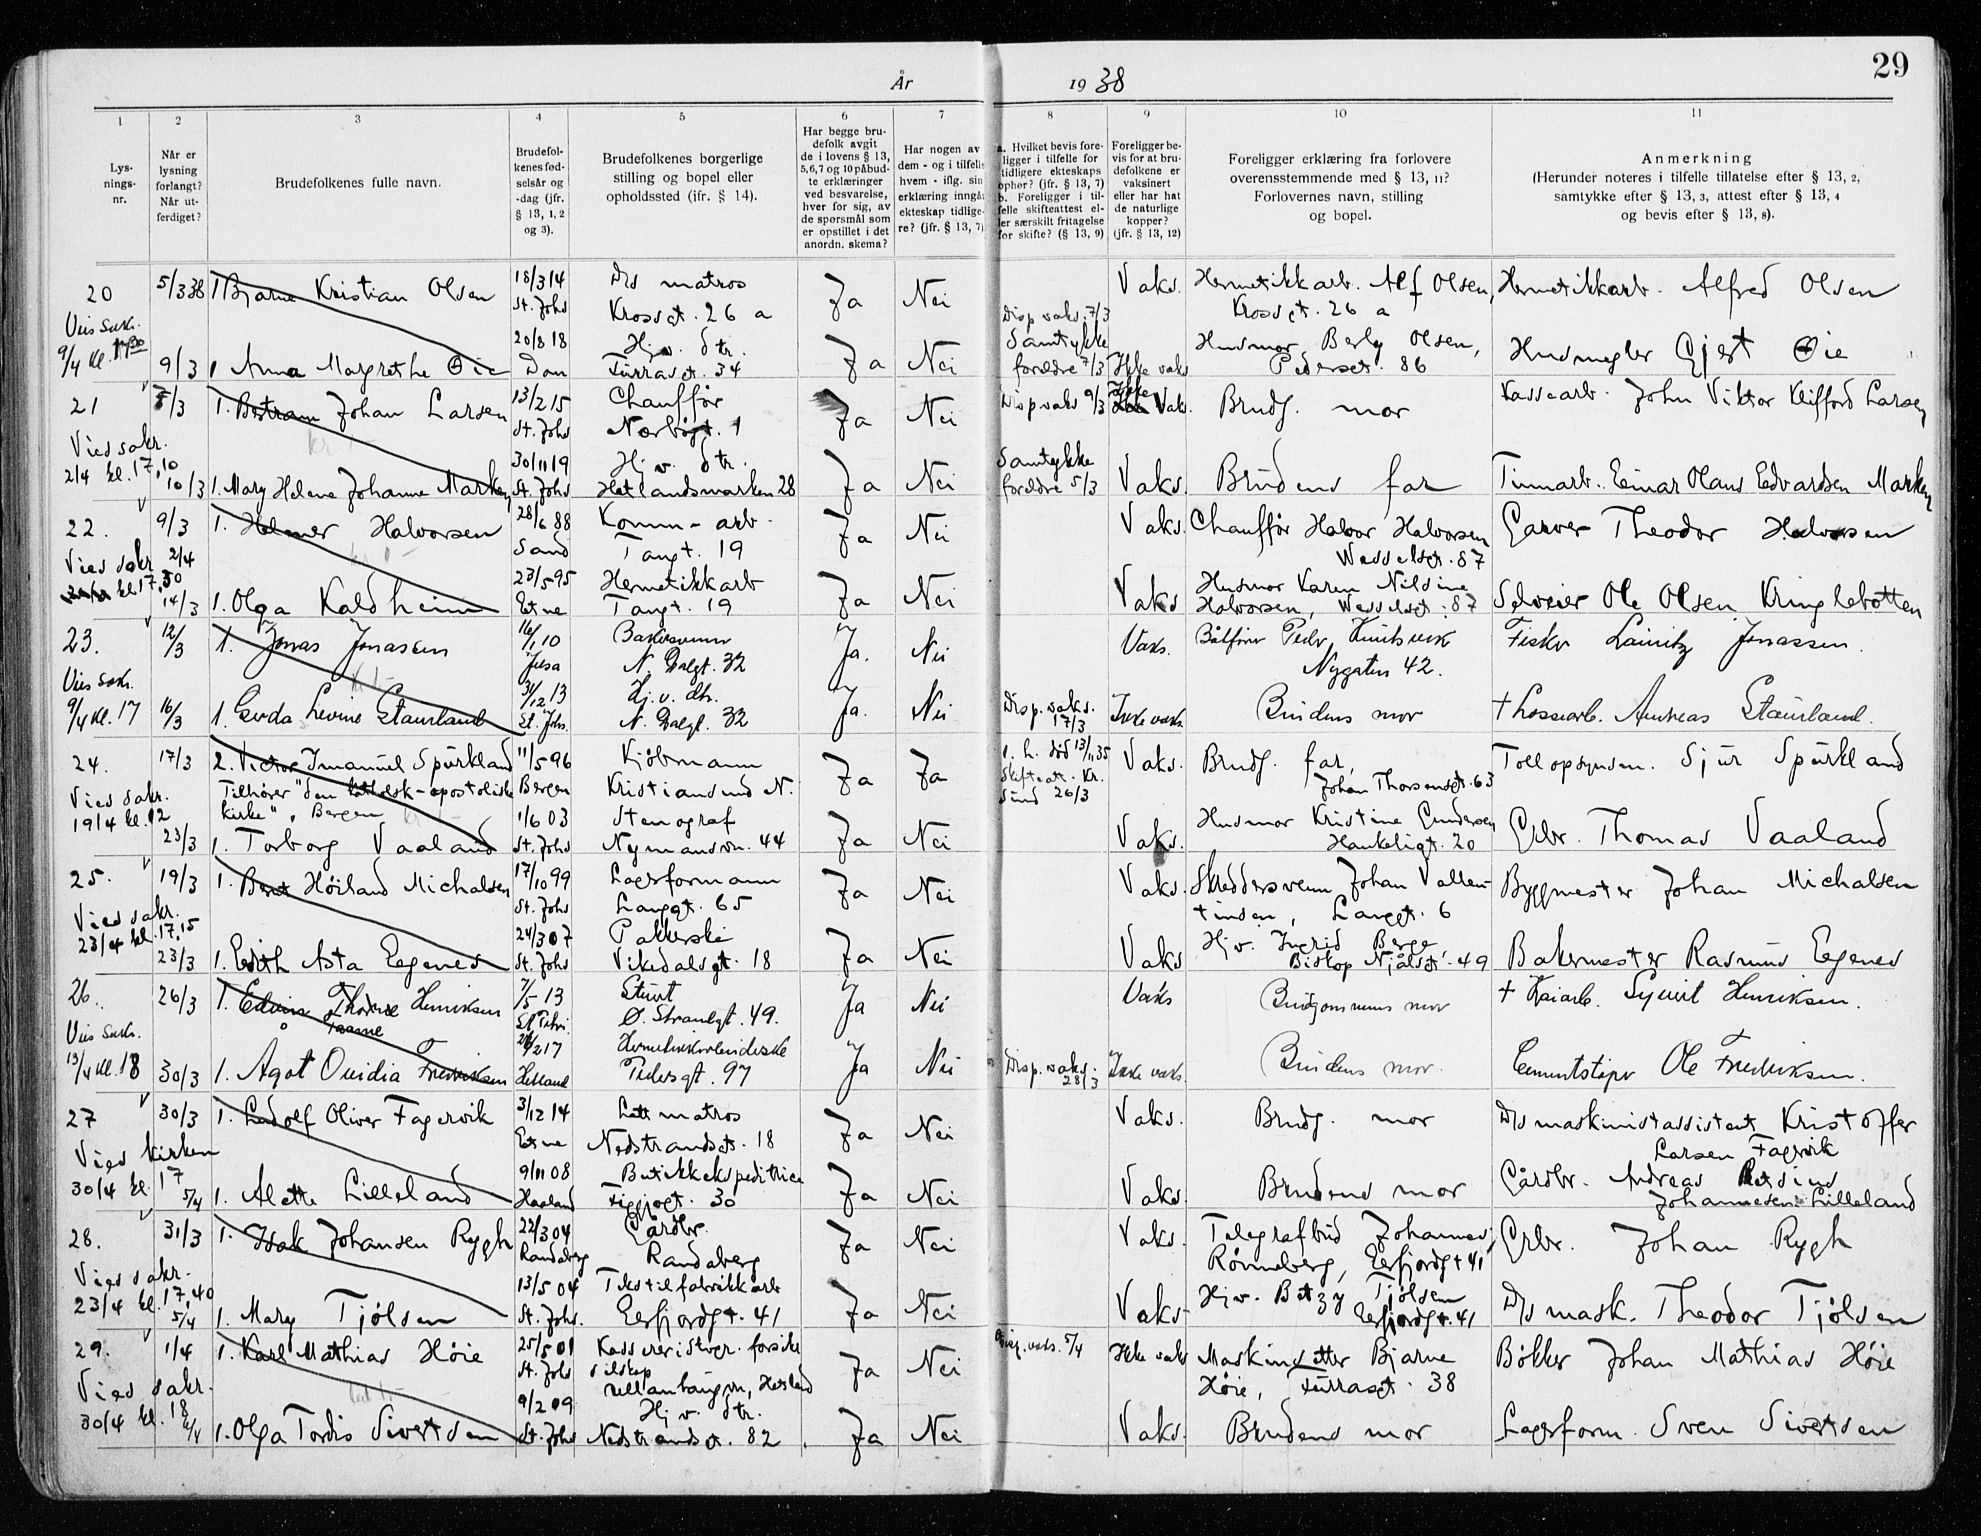 29
År 1938
1 2 3 4 5 6 7 8 9 10 11
Lys-
nings-
nr.
Når er
lysning
forlangt?
Når ut-
ferdiget?
Brudefolkenes fulle navn.
Brudefol-
kenes fød-
selsår og
-dag (jfr.
§ 13, 1, 2
og 3).
Brudefolkenes borgerlige
stilling og bopel eller
opholdssted (ifr. § 14).
Har begge bru-
defolk avgit
de i lovens § 13,
5,6,7 og 10 påbud-
te erklæringer
ved besvarelse,
hver for sig, av
de spørsmål som
er opstillet i det
anordn. skema?
Har nogen av
dem - og i tilfelle
hvem - iflg. sin
erklæring inngåt
ekteskap tidlige-
re? (jfr. § 13, 7)
a. Hvilket bevis fore-
ligger i tilfelle for
tidligere ekteskaps
ophør? (jfr. § 13, 7)
b. Foreligger i til-
felle skifteattest el-
ler særskilt fritagelse
for skifte? (§ 13, 9)
Foreligger be-
vis for at bru-
defolkene er
vaksinert
eller har hat
de naturlige
kopper?
(jfr. § 13, 12)
Foreligger erklæring fra forlovere
overensstemmende med § 13, 11?
Forlovernes navn, stilling
og bopel.
Anmerkning
(Herunder noteres i tilfelle tillatelse efter § 13, 2,
samtykke efter § 13, 3, attest efter § 13, 4
og bevis efter § 13, 8).
20 5/3 38 1 Bjarne Kristian Olsen 18/3 14 D/s matros Ja Nei Vaks. Hermetikkarb. Alf Olsen, Hermetikkarb. Alfred Olsen
St. Johs Krossgt. 26 a Disp vaks. 7/3 Krossgt. 26 a
Vies sakr. 20/8 18 Hj. v. dtr. Samtykke Husmor Berly Olsen,
9/4 kl. 9/3 1 Anna Margrethe Øie Dan Furrasgt. 34 Ja Nei foreldre 7/3 Ikke vaks Pedersgt. 86 Husmegler Gjert Øie
21 7/3 1. Bertram Johan Larsen 13/2 15 Chauffør Ja Nei Disp vaks 9/3 Ikke Vaks. Brudg. mor Kassearb. John Viktor Klifford Larsen
St. Johs Nærbøgt. 1
Vies sakr. 30/11 19 Hj. v. dtr. Samtykke
2/4 kl. 17,10 10/3 1. Mary Helene Johanne Marken St. Johs Hetlandsmarken 28 Ja Nei foreldre 5/3 Vaks. Brudens far Tinnarb. Einar Olaus Edvardsen Marken
22. 9/3 1. Helmer Halvorsen 28/6 88 Komm-arb. Ja Nei Vaks. Chauffør Halvor Halvorsen Garver Theodor Halvorsen
Sand Tangt. 19 Wesselsgt. 87
Vies sakr 2/4 23/5 95 Hermetikkarb Husmor Karen Nilsine
kl 17,30 14/3 1. Olga Kaldheim Etne Tangt. 19 Ja Nei Vaks Halvorsen, Wesselsgt. 87 Selveier Ole Olsen Kringlebotten
23. 12/3 1. Jonas Jonassen 16/1 10 Bakersvenn Ja. Nei Vaks. Båtfører Peder Nygaten 42. Fisker Jonassen.
Jelsa N. Dalgt. 32
Vies sakr. 31/12 13 Hj. v. dtr. Disp. vaks.
9/4 kl. 17 16/3 1. Gerda Levine Staurland St. Johs. N. Dalgt. 32 Ja. Nei 17/3 Ikke vaks. Brudens mor † Lossearb. Andreas Staurland.
24. 17/3 2. Victor Imanuel Spurkland 11/5 96 Kjøbmann Ja Ja 1. h. død 13/11 35 Vaks. Brudg. far, Tollopsynsm. Sjur Spurkland
Tilhører "den katholsk-apostoliske Bergen Kristiansund N. Skifteatt. Kr. Johan Thorsensgt. 63
Vies sakr. kirke", Bergen 1/6 03 Stenograf sund 26/3 Husmor Kristine Gundersen
19/4 kl. 12 23/3 1. Torborg Vaaland St. Johs Nymansvn. 44 Ja Nei Vaks. Haukeligt. 20 Grbr. Thomas Vaaland
25. 19/3 1. Beret Høiland Michalsen 17/10 99 Lagerformann Ja Nei Vaks. Skreddersvenn Johan Vallen- Byggmester Johan Michalsen
St. Johs Langgt. 65 tinsen, Langgt. 6
Vies sakr. 24/3 07 Pakkerske Hj. v. Ingrid Berge
23/4 kl. 17,15 23/3 1. Edith Asta Eegenes St. Johs Vikedalsgt. 18 Ja Nei Vaks Biskop Njålsgt. 49 Bakermester Rasmus Eegenes
26. 26/3 1. Edvin Thorne Henriksen 7/5 13 Stuert Ja Nei Vaks Brudgommens mor † Kaiarb. Syvert Henriksen.
St Petri Ø. Strandgt. 49.
Vies sakr. 2 17 Hermetikkarbeiderske
13/4 kl. 18 30/3 1. Agot Ovidia Fredriksen Hetland Pedersgt. 97 Ja Nei Disp. vaks. 28/3 Ikke vaks. Brudens mor. Cementstøper Ole Fredriksen.
27 30/3 1. Ludolf Oliver Fagervik 3/12 14 Lettmatros Ja Nei Vaks. Brudg. mor D/s maskinistassistent Kristoffer
Etne Nedstrandsgt. 18 Larsen Fagervik
Vies kirken 9/11 08 Butikkekspeditrice Gårdbr. Andreas
30/4 kl. 17 5/4 1. Alette Lilleland Haaland Figgjogt. 30 Ja Nei Vaks. Brudens mor Johannesen Lilleland
28. 31/3 1. Isak Johansen Rygh 22/3 04 Gårdbr. Ja Nei Vaks. Telegrafbud Johannes Grbr. Johan Rygh
Randaberg Randaberg Rønneberg, Erfjordgt 41
Vies sakr. 13/5 04 Tekstilfabrikkarb Hj. v. Betzy Tjølsen
23/4 kl. 17,40 5/4 1. Mary Tjølsen St. Johs. Erfjordgt. 41 Ja Nei Vaks. Erfjordgt. 41 D/s mask. Theodor Tjølsen
29. 1/4 1. Karl Mathias Høie 25/5 01 Kasserer Ja Nei Disp. vaks. 5/4 Ikke vaks Maskinsetter Bjarne Bøkker Johan Mathias Høie
St. Johs Høie, Furrasgt. 38
Vies sakr. 9/2 09 Hj. v. dtr.
30/4 kl. 18 6/4 1. Olga Tordis Sivertsen St. Johs Nedstrandsgt. 82 Ja Nei Vaks. Brudens mor Lagerform. Sven Sivertsen